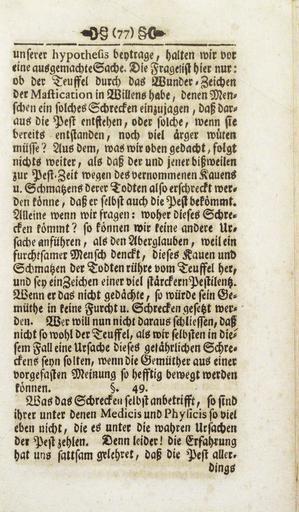 (77)
unserer hypothesis beytrage, halten wir vor
eine ausgemachte Sache. Die Frage ist hier nur:
ob der Teuffel durch das Wunder-Zeichen
der Mastication in Willens habe, denen Men-
schen ein solches Schrecken einzujagen, daß dar-
aus die Pest entstehen, oder solche, wenn sie
bereits entstanden, noch viel ärger wüten
müsse? Aus dem, was wir oben gedacht, folgt
nichts weiter, als daß der und jener bißweilen
zur Pest-Zeit wegen des vernommenen Kauens
u. Schmatzens derer Todten also erschreckt wer-
den könne, daß er selbst auch die Pest bekömmt.
Alleine wenn wir fragen: woher dieses Schre-
cken kömmt? so können wir keine andere Ur-
sache anführen, als den Aberglauben, weil ein
furchtsamer Mensch denckt, dieses Kauen und
Schmatzen der Todten rühre vom Teuffel her,
und sey ein Zeichen einer viel stärckern Pestilentz.
Wenn er das nicht gedächte, so würde sein Ge-
müthe in keine Furcht u. Schrecken gesetzt wer-
den. Wer will nun nicht daraus schliessen, daß
nicht so wohl der Teuffel, als wir selbsten in die-
sem Fall eine Ursache dieses gefährlichen Schre-
ckens seyn solten, wenn die Gemüther aus einer
vorgefasten Meinung so hefftig bewegt werden
können. §. 49.
Was das Schrecken selbst anbetrifft, so sind
ihrer unter denen Medicis und Physicis so viel
eben nicht, die es unter die wahren Ursachen
der Pest zehlen. Denn leider! die Erfahrung
hat uns sattsam gelehret, daß die Pest aller-
dings